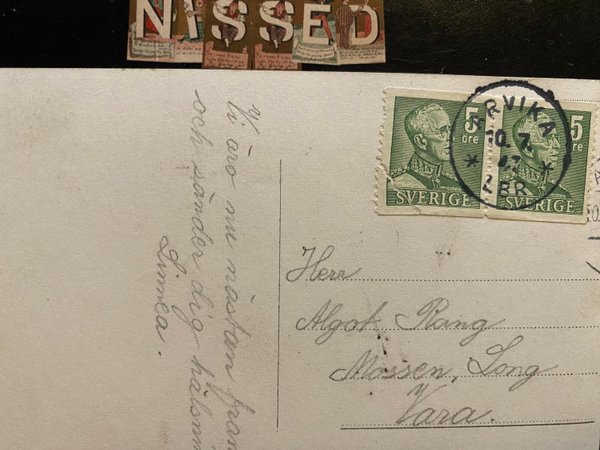 NISSED
Vi äro nu nästan fram
och sänder dig hälsni
Linnea.
5 öre SVERIGE
5 öre SVERIGE
ARVIKA
10.7.
LBR
Herr
Algot Rang
Mossen, Long
Vara.